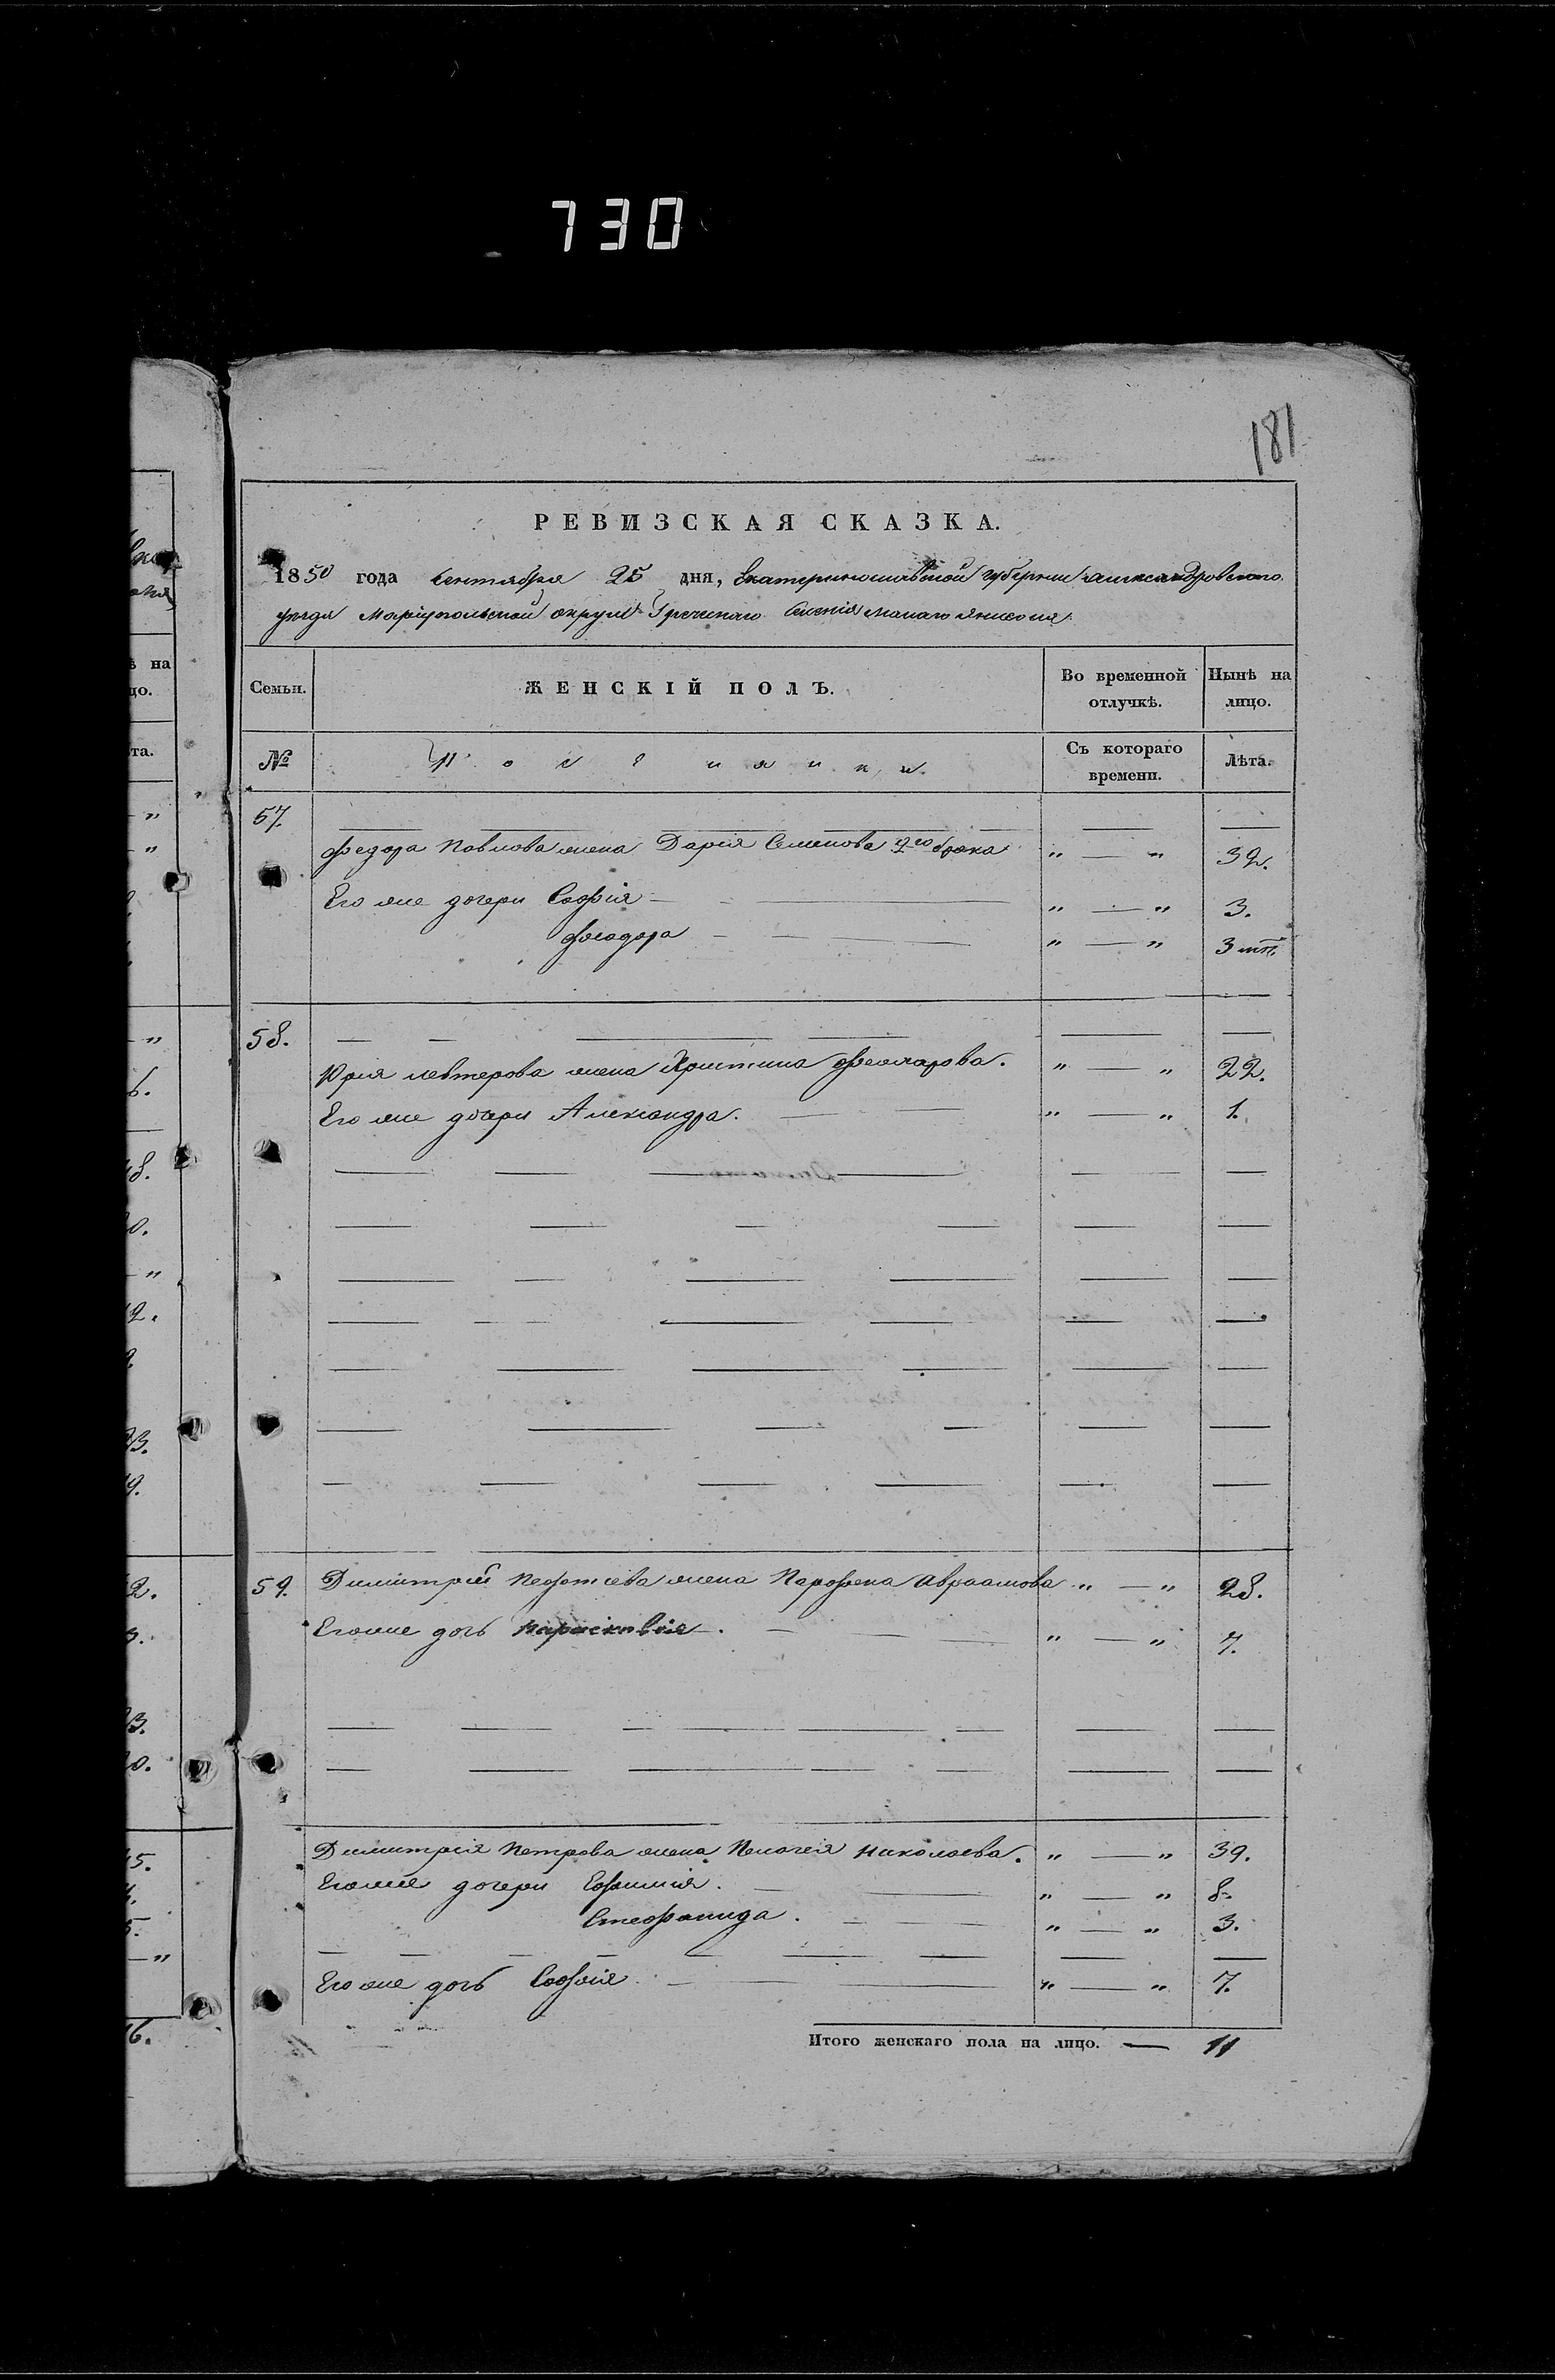 730
181
РЕВИЗСКАЯ СКАЗКА.
1850 года Сентября 25 дня, Екатеринославской Губернии Александровскаго
уезда Мариупольской округи Греческаго Селения Малаго Янисоля
Семьи. ЖЕНСКІЙ ПОЛЪ. Во временной отлучкѣ. Нынѣ на лицо.
№ Поселянки. Съ котораго времени. Лѣта.
57.
Федора Павлова жена Дарія Семенова 2го брака " — " 32.
Его же дочери Софія " — " 3.
Феодора " — " 3 мѣ.
58.
Юрія Левтерова жена Христина . " — " 22.
Его же дочери Александра. " — " 1.
59. Димитрій жена Парфена Авраамова " — " 28.
Его же дочь Парасковія. " — " 7.
Димитрія Петрова жена Пелагея Николаева. " — " 39.
Его же дочери Ефимія. " — " 8.
Стефанида. " — " 3.
Его же дочь Софія. " — " 7.
Итого женскаго пола на лицо. — 11
ѣ на
цо.
та.
"
"
"
6.
8.
0.
"
2.
33.
9.
2.
3.
3.
0.
5.
5.
"
6.